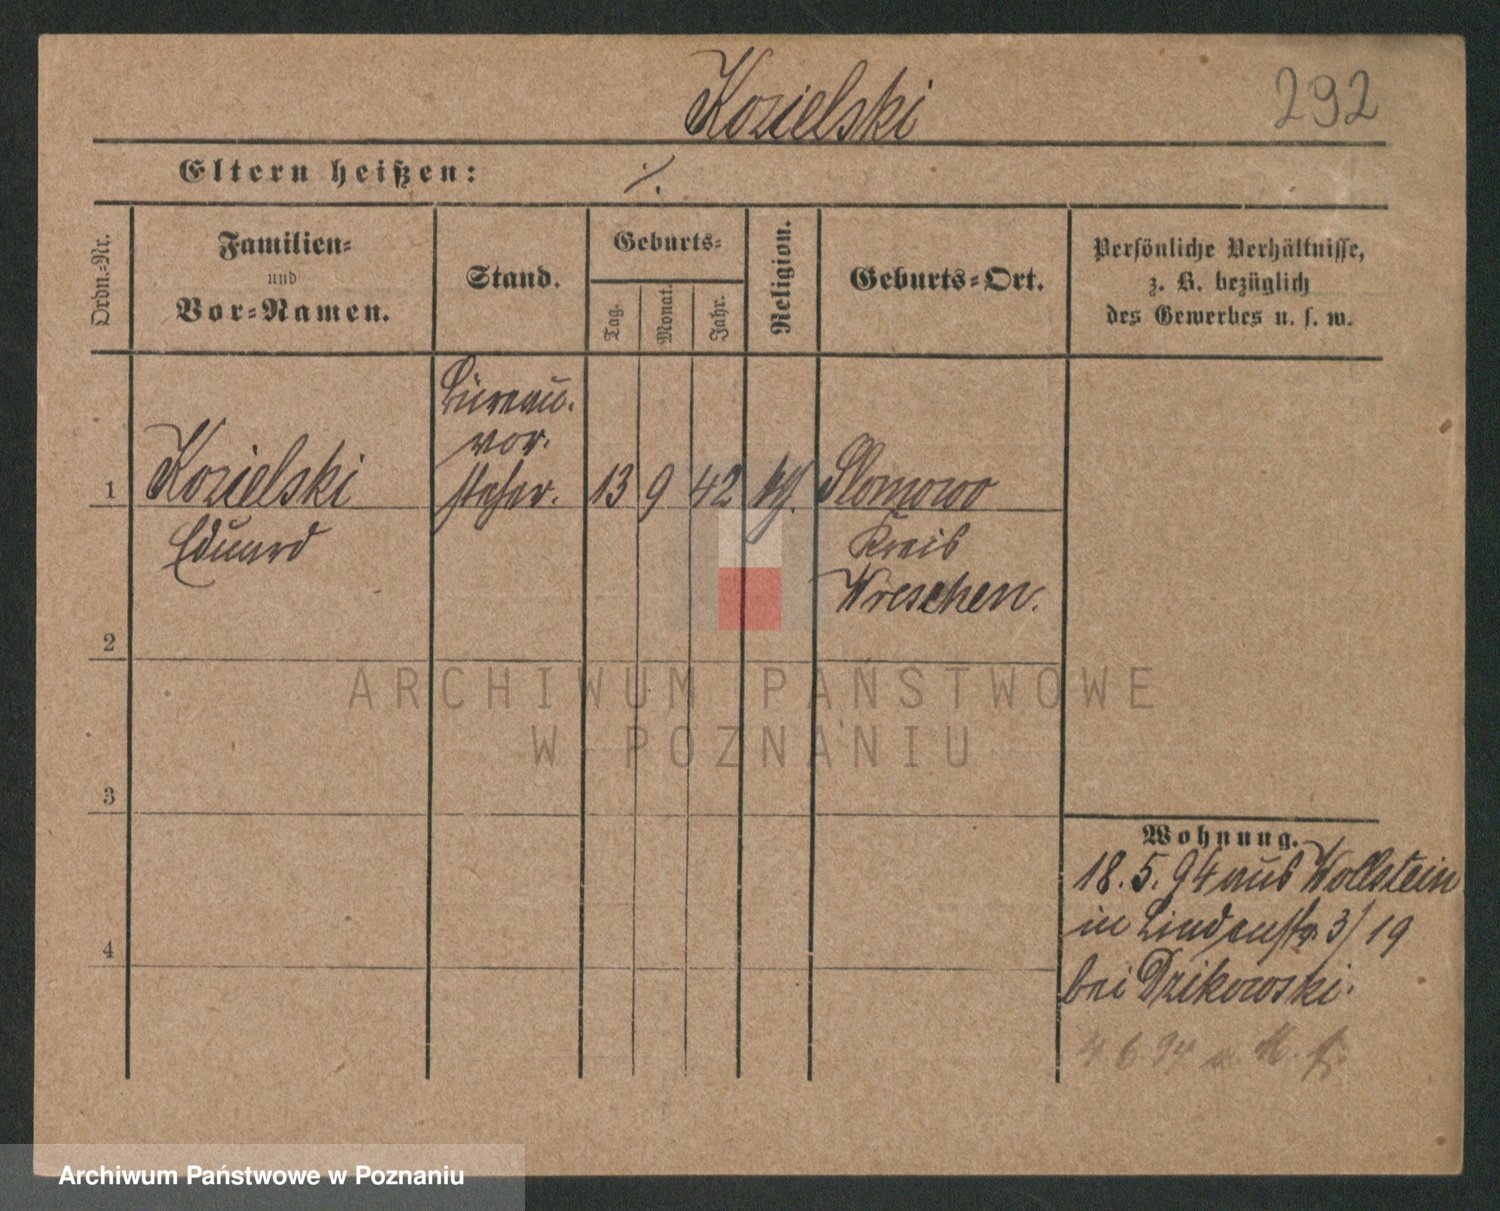 Kozielski
292
Eltern heißen:
./.
Ordn.-Nr.
Familien-
und
Vor-Namen.
Stand.
Geburts-
Tag.
Monat.
Jahr.
Religion.
Geburts-Ort.
Persönliche Verhältnisse,
z. B. bezüglich
des Gewerbes u. s. w.
Büreau.
vor.
1 Kozielski steher. 13 9 42 Slomowo
Eduard Kreis
Wreschen.
2
3
4
Wohnung.
18. 5. 94 aus Wollstein
in Lindenstr. 3/19
bei Dzikowski.
4 6 94
ARCHIWUM PAŃSTWOWE
W POZNANIU
Archiwum Państwowe w Poznaniu